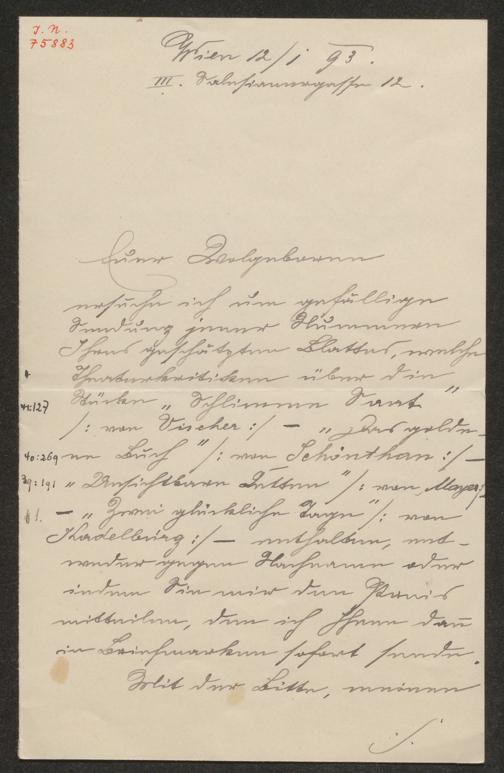 I. N.
75883
Wien 12/1 93.
III. Salesianergasse 12.
Euer Wolgeboren
ersuche ich um gefällige
Sendung jener Nummern
Ihres geschätzten Blattes, welche
Theaterkritiken über die
Stücke „Schlimme Saat"
41:127
/: von Vischer :/ – „Das golde-
40:269
ne Buch" /: von Schönthan :/ –
39:191
„Unsichtbare Ketten" /: von Mayer :/
– „Zwei glückliche Tage" /: von
Kadelburg :/ – enthalten, ent-
weder gegen Nachname oder
indem Sie mir den Preis
mitteilen, den ich Ihnen dan̄
in Briefmarken sofort sende.
Mit der Bitte, meinen
./.